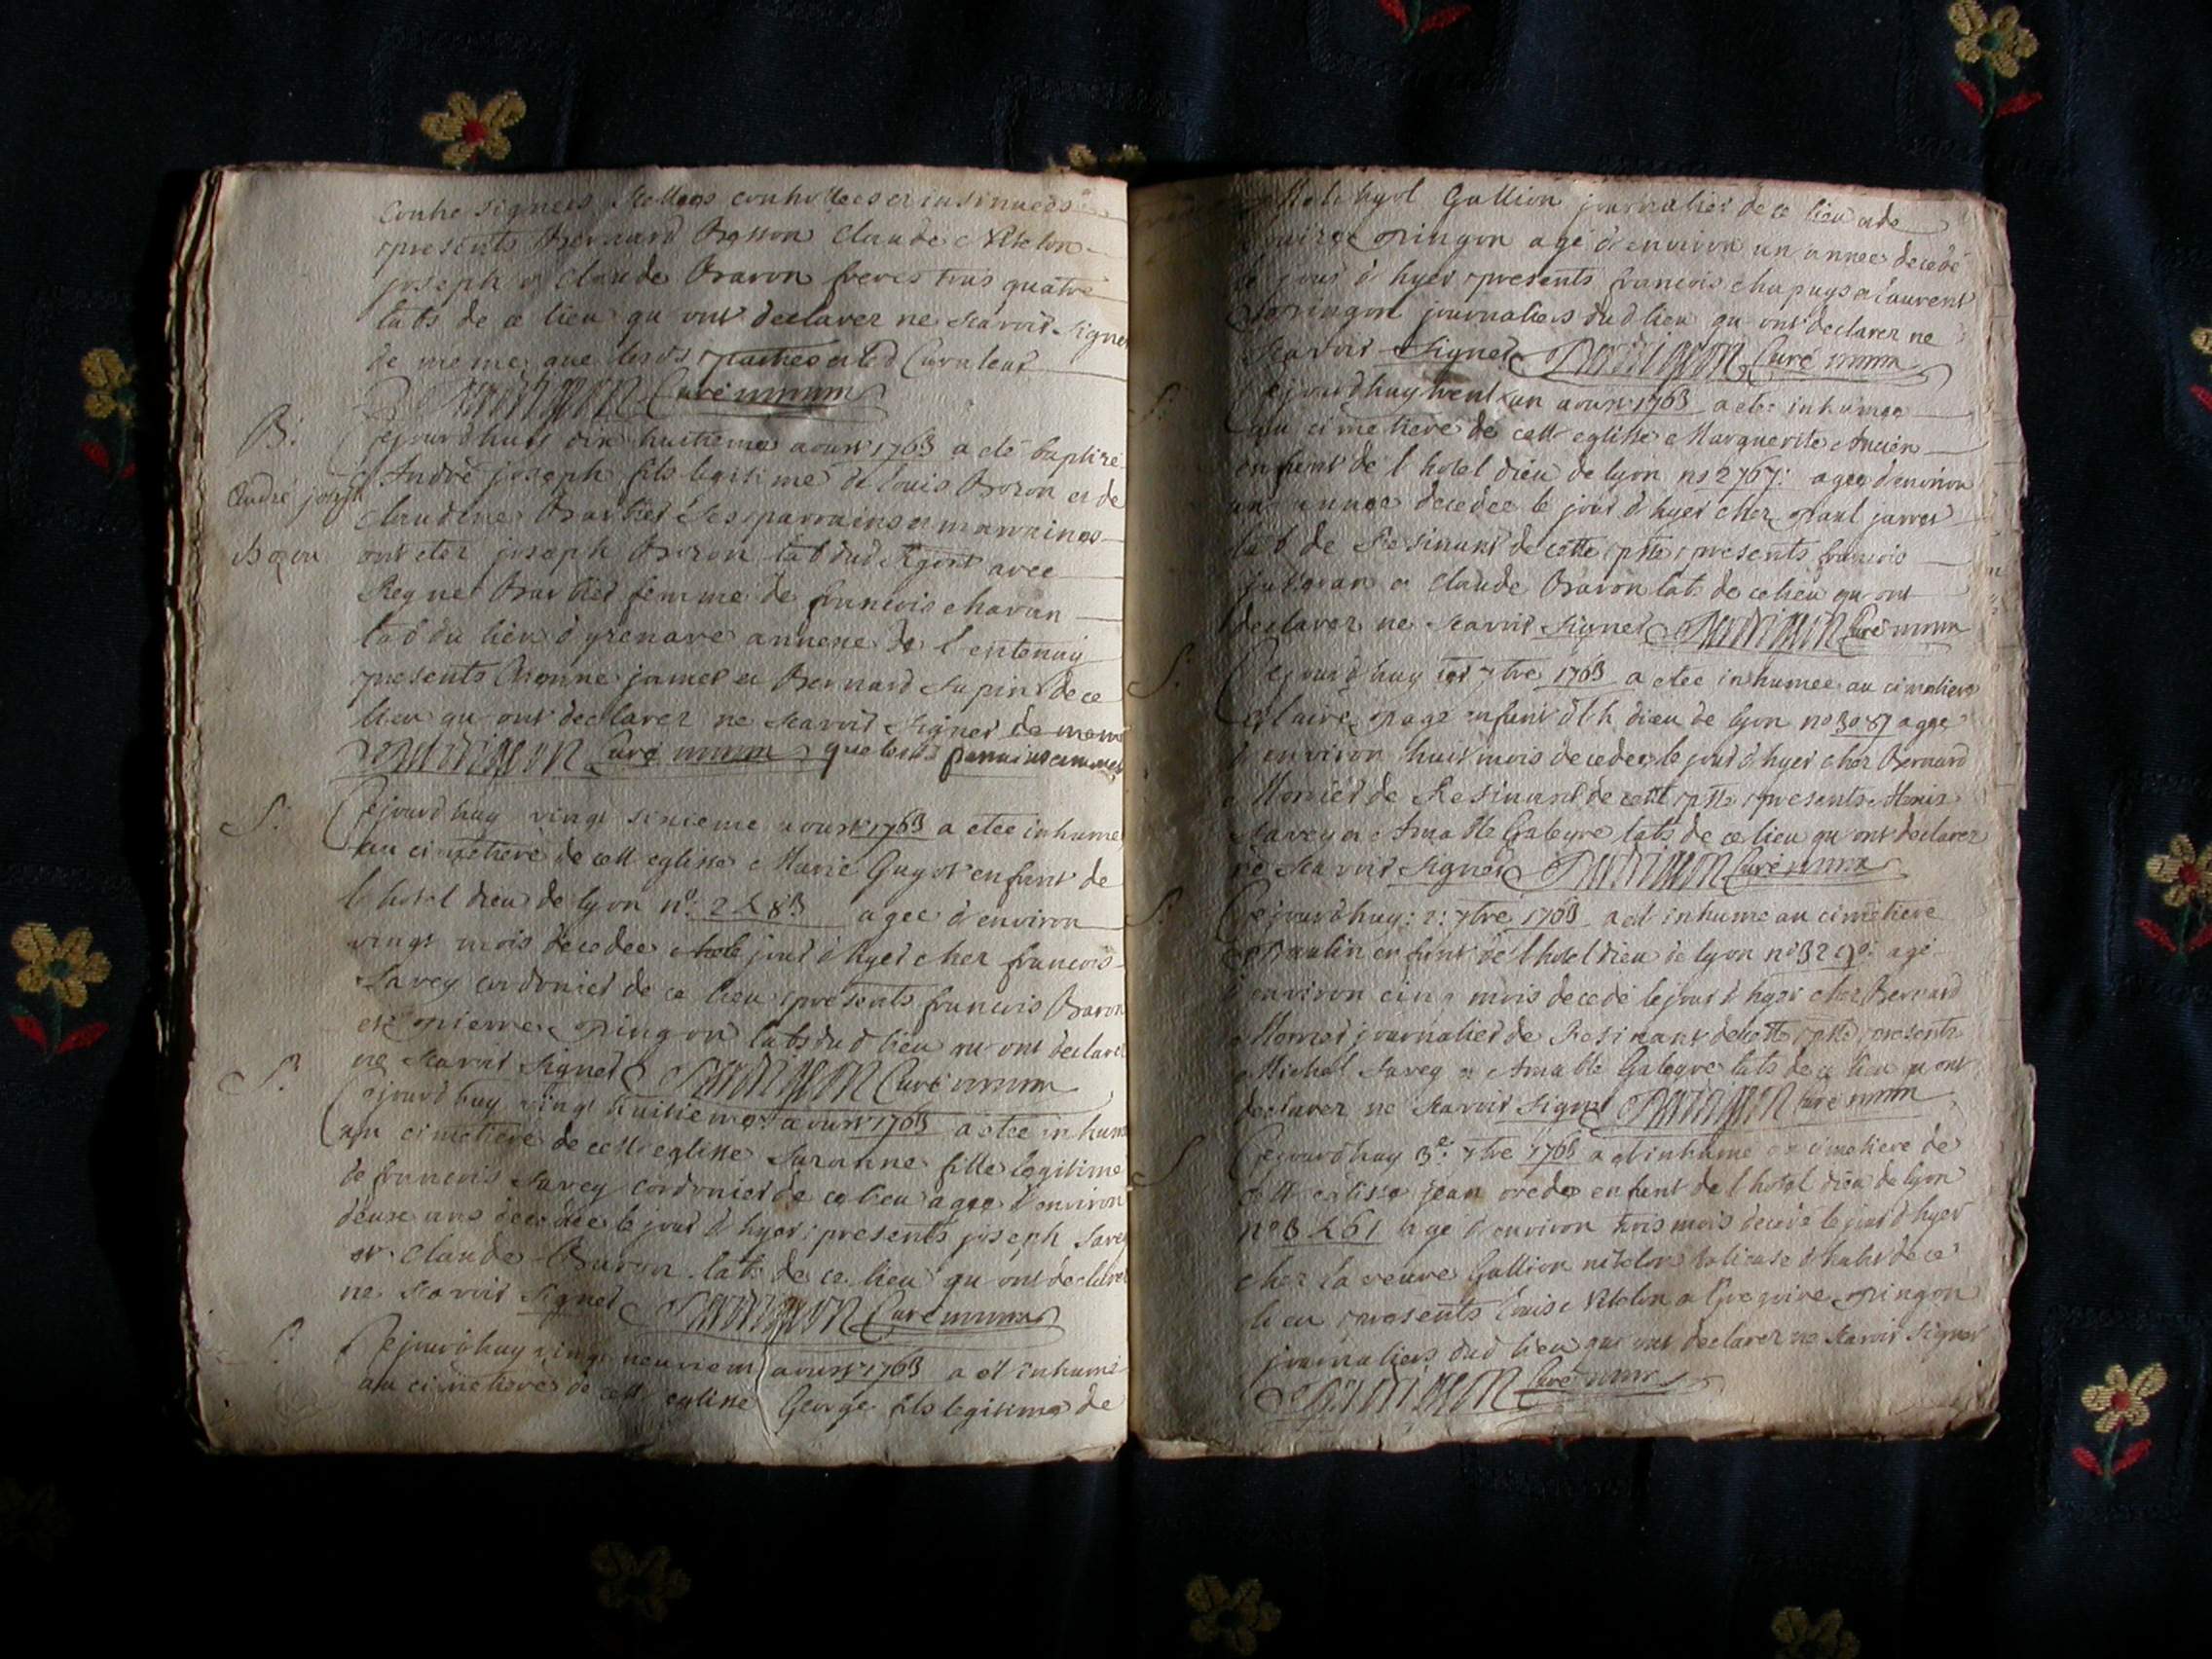 contre signees scellees controllees et insinuees
presents Bernard Besson Claude Nitelon
joseph et Claude Baron freres tous quatre
labs de ce lieu qu ont declarer ne scavoir signer
de meme que lesds parties et led Curateur
Curé
B: Cejourdhuy dix huitieme aoust 1763 a eté baptizé
André joseph
André joseph fils legitime de louis Bozon et de
Claudine Barbier ses parrains et marraines
Bozon
ont eter joseph Bozon lab dud Rgort avec
femme de francois charvan
lab du lieu d yzenave annexe de lentenay
presents jamet et Bernard Supin de ce
lieu qu ont declarer ne scavoir signer de meme
Curé que lesds parrains
S: Cejourdhuy vingt sixieme aoust 1763 a etee inhumee
au cimetiere de cett eglisse Marie Guyot enfant de
l hotel dieu de lyon no: 2483 agee d environ
vingt mois decedee le jour d hyer chez francois
Savey cordonier de ce lieu presents francois Baron
et pierre pingon labs dud lieu qu ont declarer
ne scavoir signer Curé
S: Cejourdhuy vingt huitieme aoust 1763 a etee inhumee
au cimetiere de cett eglisse Suzanne fille legitime
de francois Savey cordonier de ce lieu agee d environ
deux ans decedee le jour d hyer presents joseph Savey
et Claude Baron labs de ce lieu qu ont declarer
ne scavoir signer Curé
S: Cejourdhuy vingt neuvieme aoust 1763 a et inhumé
au cimetiere de cett eglisse George fils legitime de
Gallion journalier de ce lieu et de
pingon agé d environ un annee decedé
le jour d hyer presents francois chapuys et laurent
pingon journaliers dud lieu qu ont declarer ne
scavoir signer Curé
S: Cejourdhuy trent un aoust 1763 a etee inhumee
au cimetiere de cett eglisse Marguerite Ancien
enfant de l hotel dieu de lyon no 2767: agee d environ
un annee decedee le jour d hyer chez paul jarret
lab de Resinant de cette psse presents francois
et Claude Baron labs de ce lieu qu ont
declarer ne scavoir signer Curé
S: Cejourdhuy 1er 7bre 1763 a etee inhumee au cimetiere
Claire page enfant d l h dieu de lyon no 3087 agee
d environ huit mois decedee le jour d hyer chez Bernard
Mornier de Resinant de cette psse presents
Savey et Amable Galeyre labs de ce lieu qu ont declarer
ne scavoir signer Curé
S: Cejourdhuy: 2: 7bre 1763 a et inhumé au cimetiere
paulin enfant de l hotel dieu de lyon no 3290: agé
d environ cinq mois decedé le jour d hyer chez Bernard
Mornier journalier de Resinant de cette psse presents
Michel Savey et Amable Galeyre labs de ce lieu qu ont
declarer ne scavoir signer Curé
S Cejourdhuy 3e: 7bre 1763 a et inhumé au cimetiere de
cett eglisse jean enfant de l hotel dieu de lyon
no 3461 agé d environ trois mois decedé le jour d hyer
chez la veuve Gallion nitelon d habit de ce
lieu presents Louis Nitelon et Gregoire pingon
journaliers dud lieu qui ont declarer ne scavoir signer
Curé